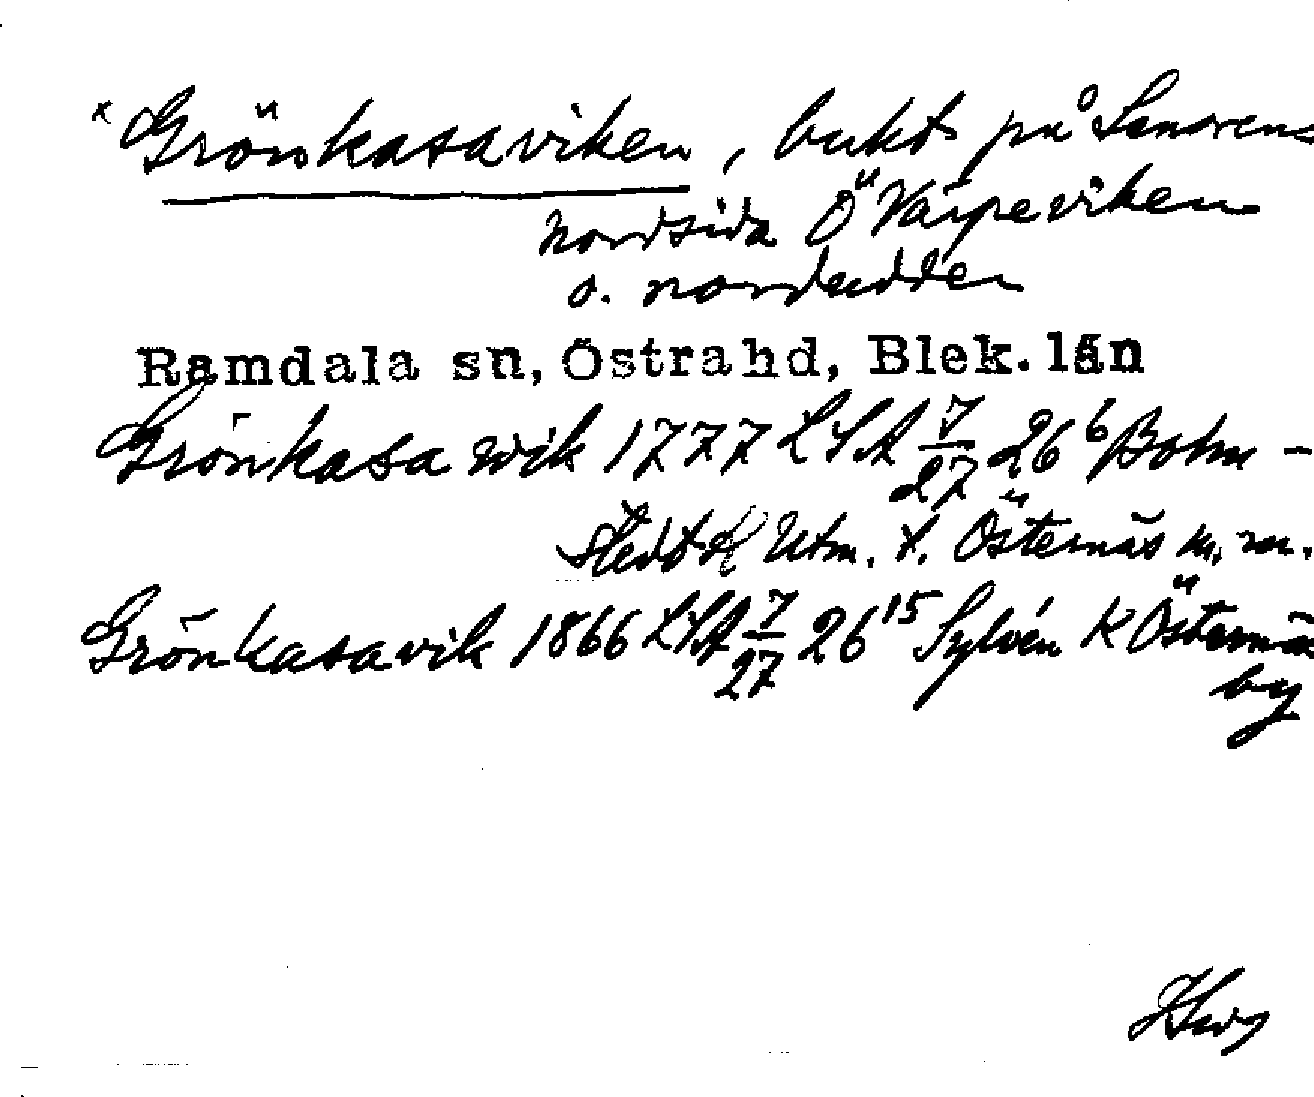 x Grönkasaviken, bukt på Senorens
nordsida Ö Värpeviken
o. nordudden
Ramdala sn, Östrahd, Blek. län
Grönkasa wik 1777 LSA 7/27 26⁶ Bohm-
stedt K Utm. t. Östernäs m. m.
Grönkasavik 1866 LSA 7/27 26¹⁵ Sylvén K Östernäs
by